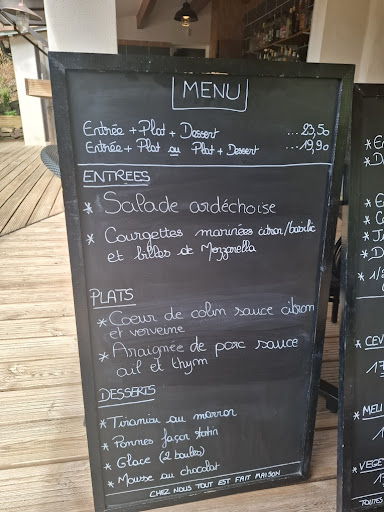 MENU
Entrée + Plat + Dessert ...23,50
Entrée + Plat ou Plat + Dessert ...19,90
ENTREES
* Salade ardéchoise
* Courgettes marinées citron/basilic
et billes de Mozzarella
PLATS
* Coeur de colin sauce citron
et verveine
* Araignée de porc sauce
ail et thym
DESSERTS
* Tiramisu au marron
* Pommes façon tatin
* Glace (2 boules)
* Mousse au chocolat
CHEZ NOUS TOUT EST FAIT MAISON
CEV
17
MELI
VEGE
17
TOUTES